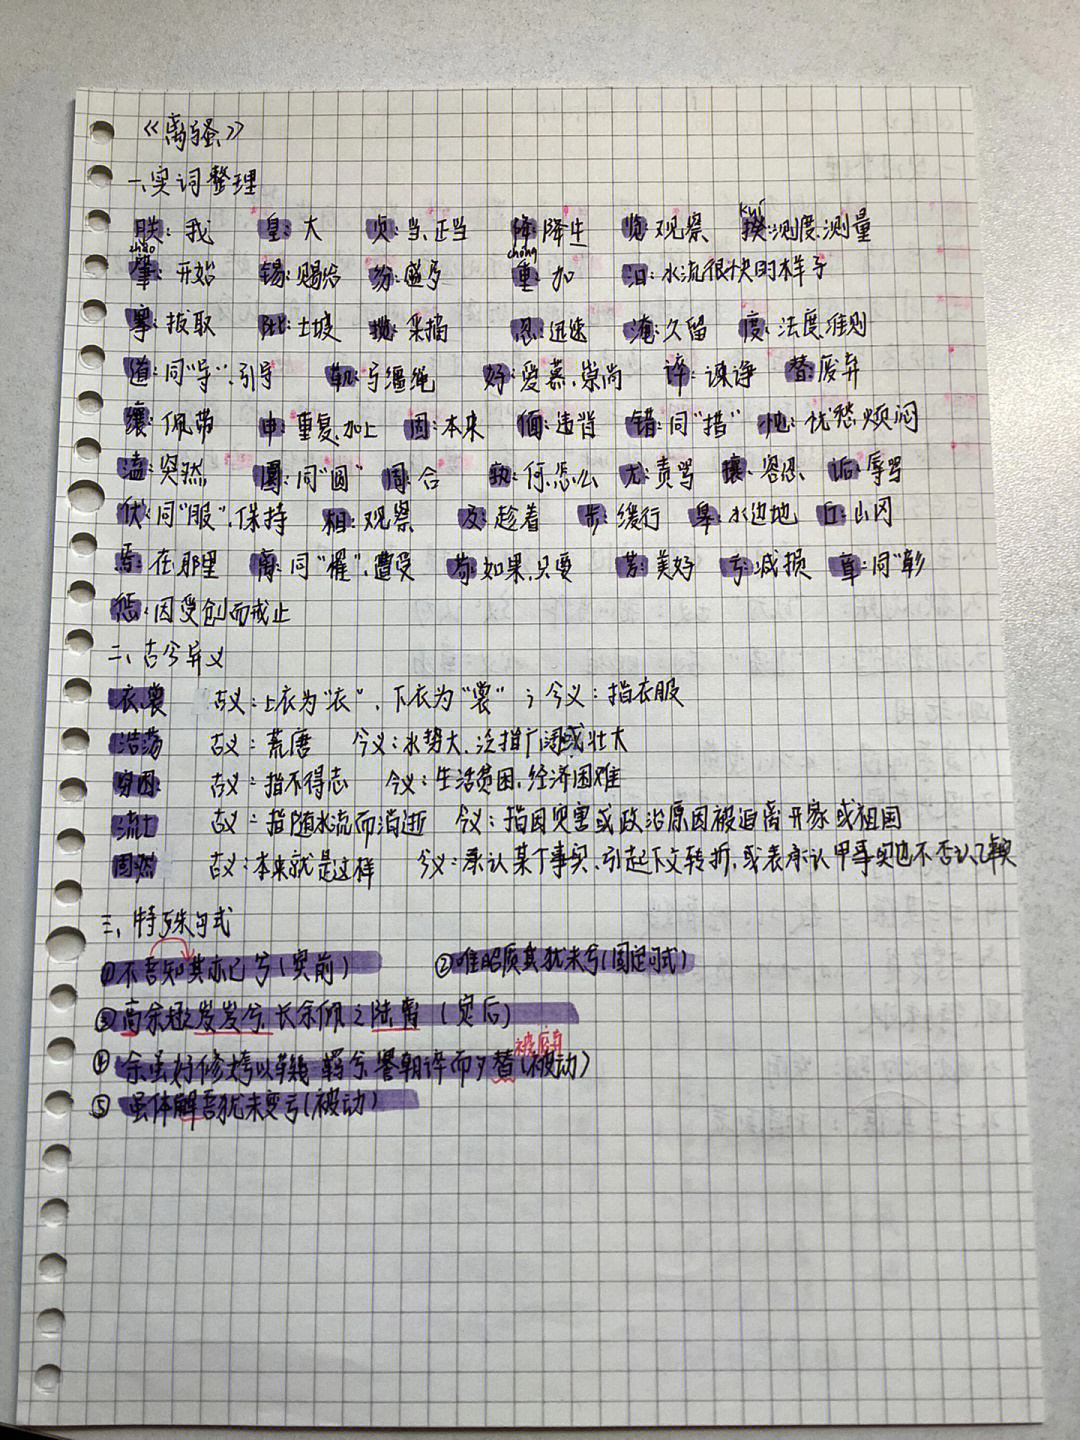 《离骚》
一、实词整理
朕：我 皇：大 贞：当、正当 降：降生 览：观察 kuí 揆：测度、测量
zhào 肇：开始 锡：赐给 纷：盛多 chóng 重：加 汩：水流很快的样子
搴：拔取 阰：土坡 揽：采摘 忽：迅速 淹：久留 度：法度、准则
道：同“导”，引导 羁：马缰绳 好：爱慕、崇尚 谇：谏诤 替：废弃
纕：佩带 申：重复、加上 固：本来 偭：违背 错：同“措” 忳：忧愁烦闷
溘：突然 圜：同“圆” 周：合 孰：何、怎么 尤：责骂 攘：容忍 诟：辱骂
伏：同“服”，保持 相：观察 及：趁着 步：缓行 皋：水边地 丘：山冈
焉：在那里 离：同“罹”，遭受 苟：如果、只要 芳：美好 亏：减损 章：同“彰
惩：因受创而戒止
二、古今异义
衣裳 古义：上衣为“衣”，下衣为“裳”；今义：指衣服
浩荡 古义：荒唐 今义：水势大，泛指广阔或壮大
穷困 古义：指不得志 今义：生活贫困，经济困难
流亡 古义：指随水流而消逝 今义：指因灾害或政治原因被迫离开家或祖国
固然 古义：本来就是这样 今义：承认某个事实，引起下文转折，或表承认甲事实也不否认乙事实
三、特殊句式
①不吾知其亦已兮（宾前） ②唯昭质其犹未亏（固定句式）
③高余冠之岌岌兮，长余佩之陆离（定后）
被废弃
④余虽好修姱以鞿羁兮，謇朝谇而夕替（被动）
⑤虽体解吾犹未变兮（被动）